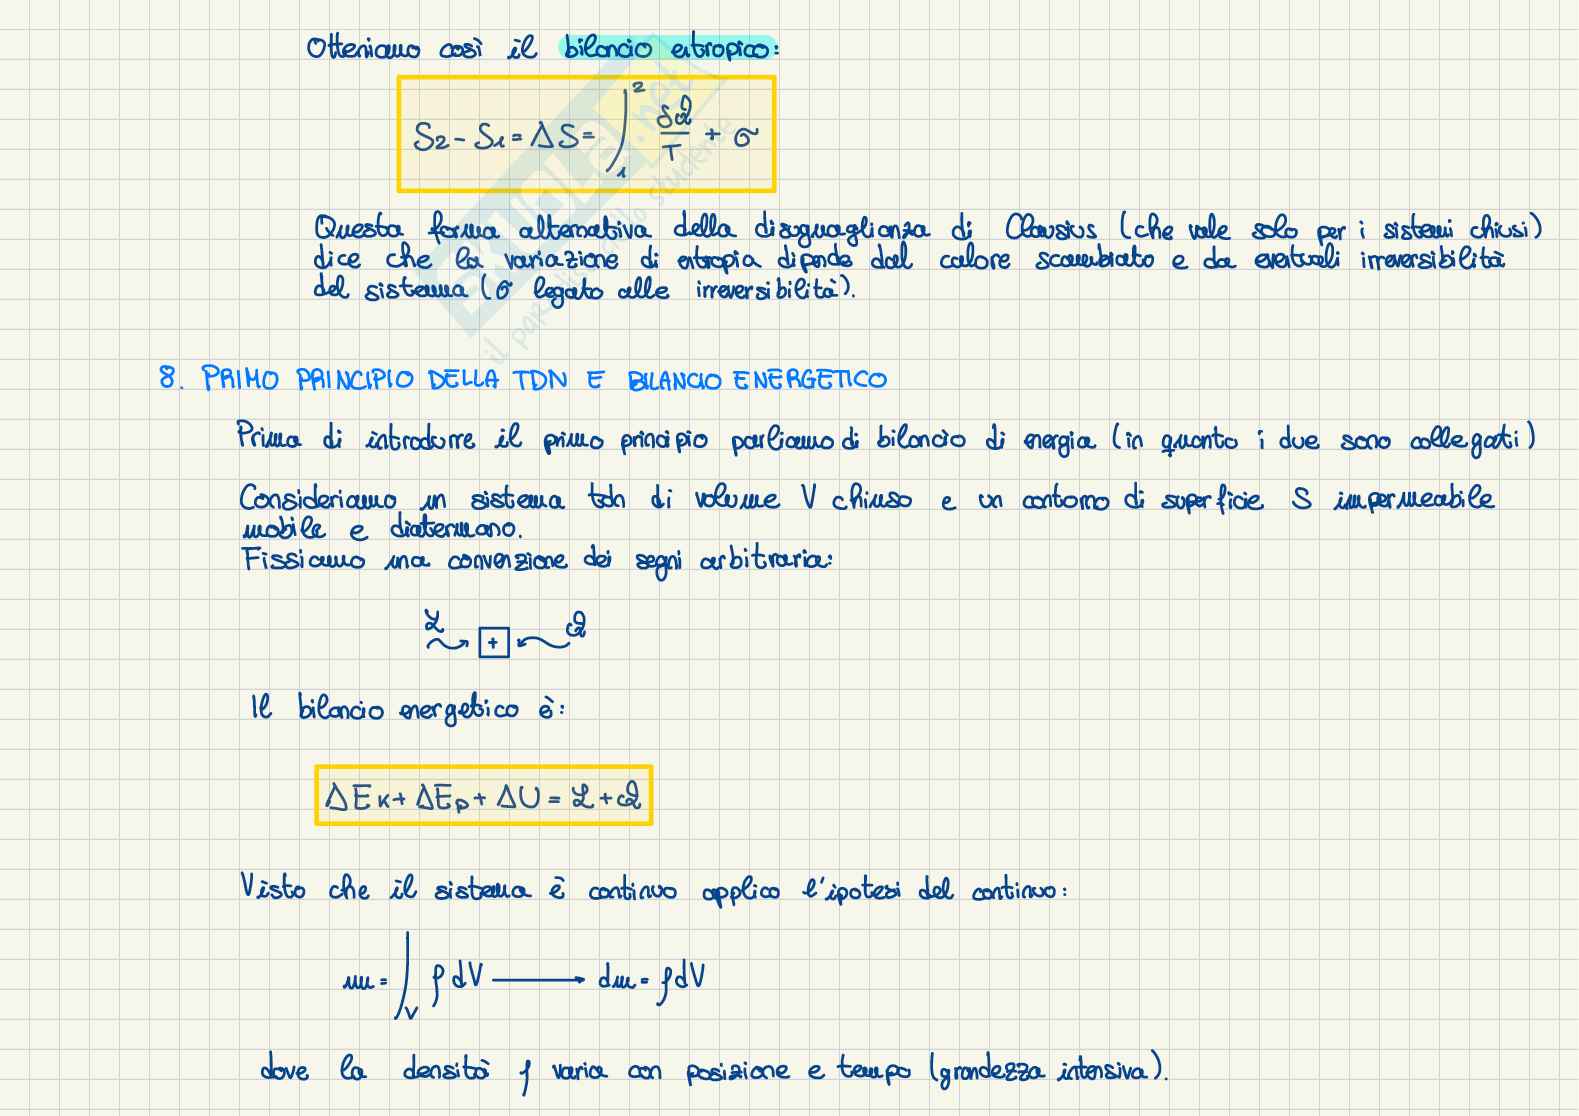 Otteniamo così il bilancio entropico:
S2 - S1 = ΔS = ∫₁² δQ/T + σ
Questa forma alternativa della disuguaglianza di Clausius (che vale solo per i sistemi chiusi)
dice che la variazione di entropia dipende dal calore scambiato e da eventuali irreversibilità
del sistema (σ legato alle irreversibilità).
8. PRIMO PRINCIPIO DELLA TDN E BILANCIO ENERGETICO
Prima di introdurre il primo principio parliamo di bilancio di energia (in quanto i due sono collegati)
Consideriamo un sistema tdn di volume V chiuso e un contorno di superficie S impermeabile
mobile e diatermano.
Fissiamo una convenzione dei segni arbitraria:
L + Q
Il bilancio energetico è:
ΔEk + ΔEp + ΔU = L + Q
Visto che il sistema è continuo applico l'ipotesi del continuo:
m = ∫V ρ dV → dm = ρ dV
dove la densità ρ varia con posizione e tempo (grandezza intensiva).